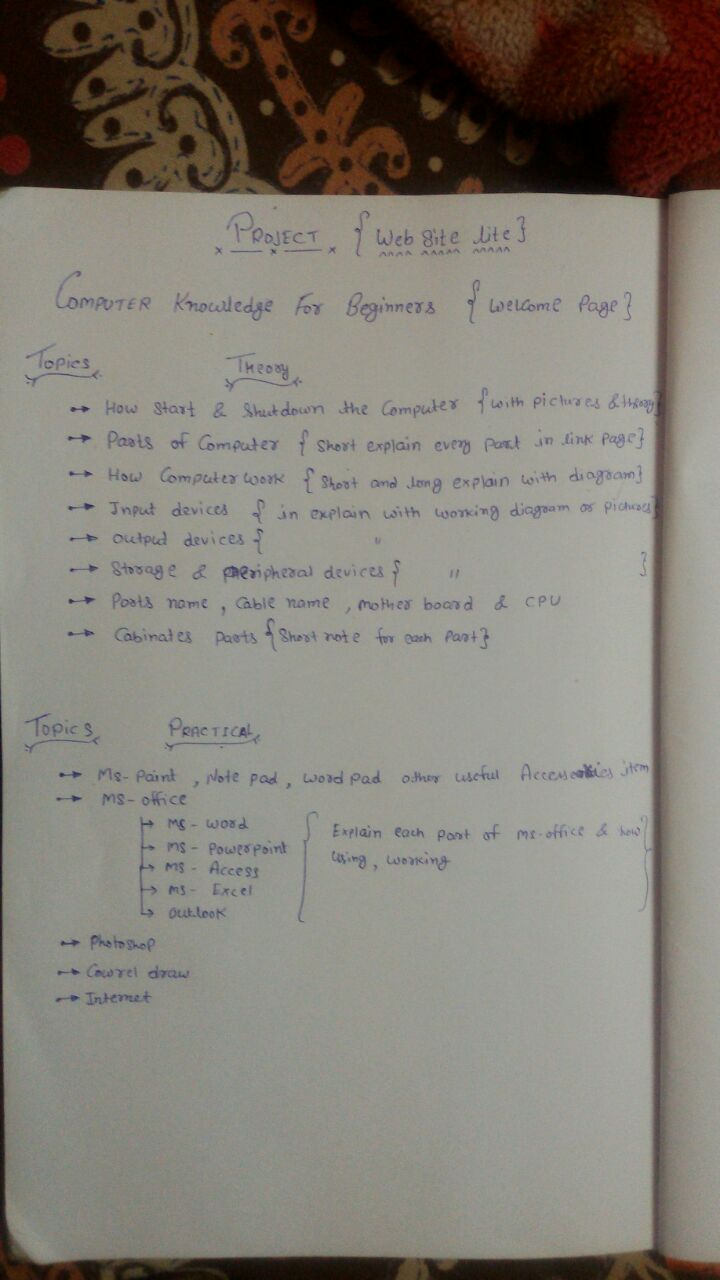 PROJECT { Web Site lite }
COMPUTER Knowledge For Beginners { Welcome Page }
Topics THEORY
How Start & Shutdown the Computer { with pictures & theory }
Parts of Computer { Short explain every part in link page }
How Computer work { Short and long explain with diagram }
Input devices { in explain with working diagram or pictures }
Output devices { "
Storage & Peripheral devices { " }
Ports name , Cable name , mother board & CPU
Cabinates parts { Short note for each Part }
Topics PRACTICAL
Ms-Paint , Note pad , Word Pad other useful Accessories item
MS-office
MS - Word
MS - Powerpoint
MS - Access
MS - Excel
Outlook
{ Explain each part of ms-office & how }
Using , working
Photoshop
Cowrel draw
Internet